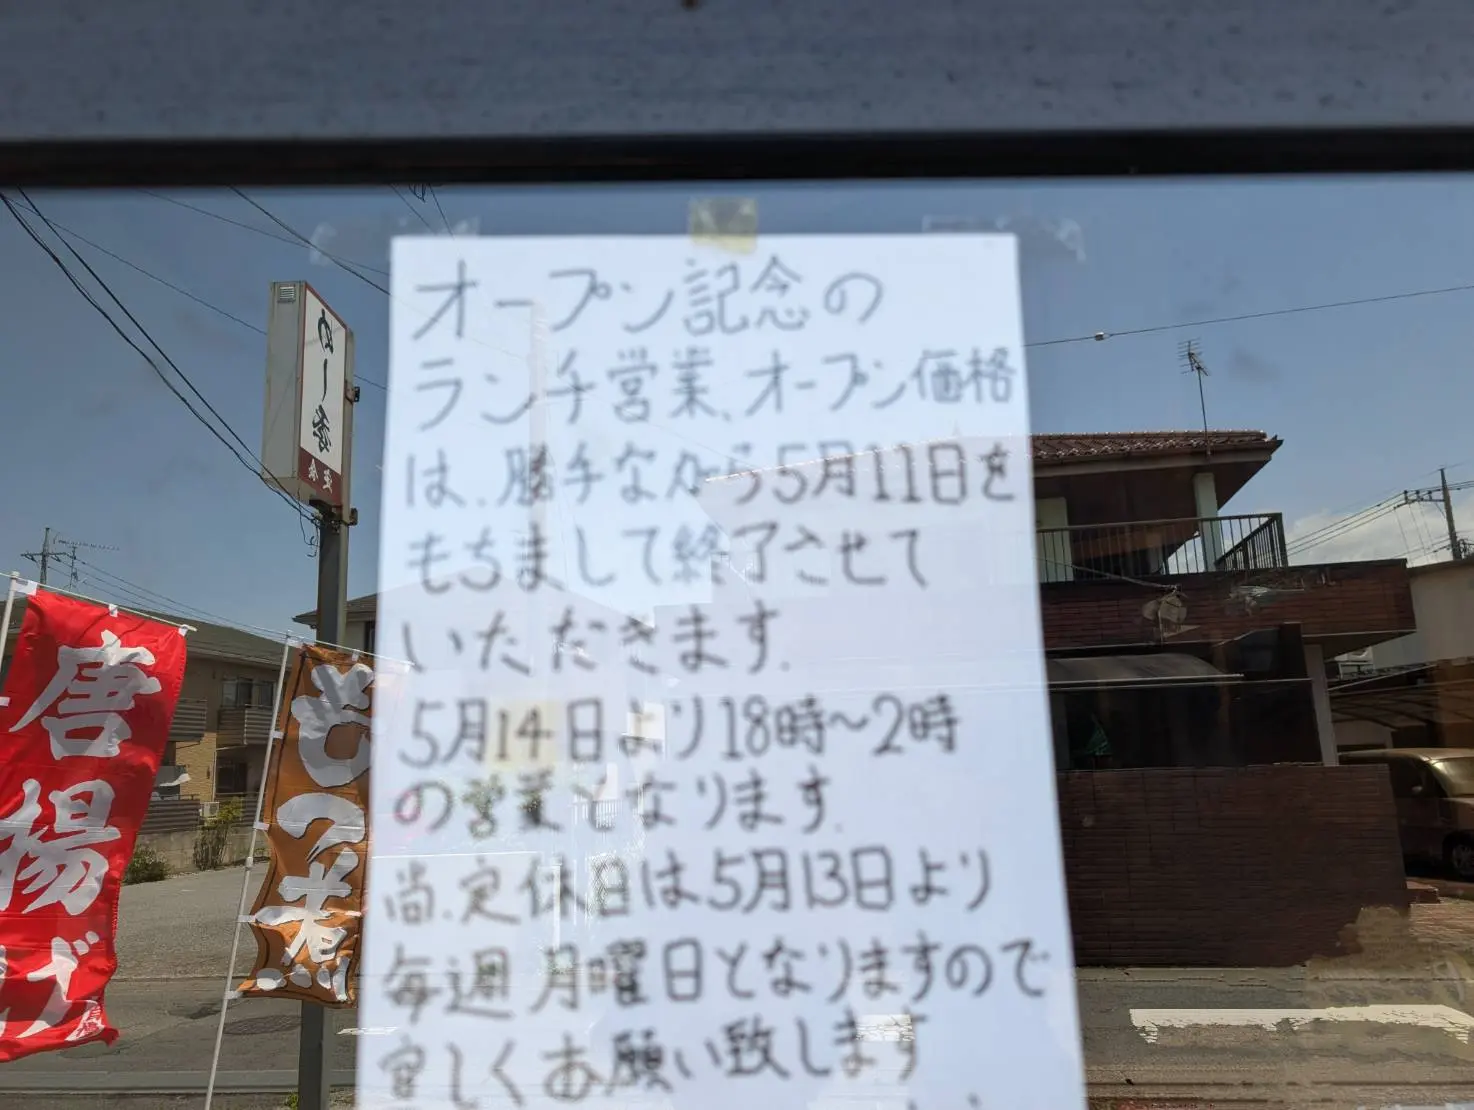 オープン記念の
ランチ営業、オープン価格
は、勝手ながら5月11日を
もちまして終了させて
いただきます.
5月14日より18時～2時
の営業となります.
尚、定休日は5月13日より
毎週月曜日となりますので
宜しくお願い致します
めし処
唐揚げ
もつ煮